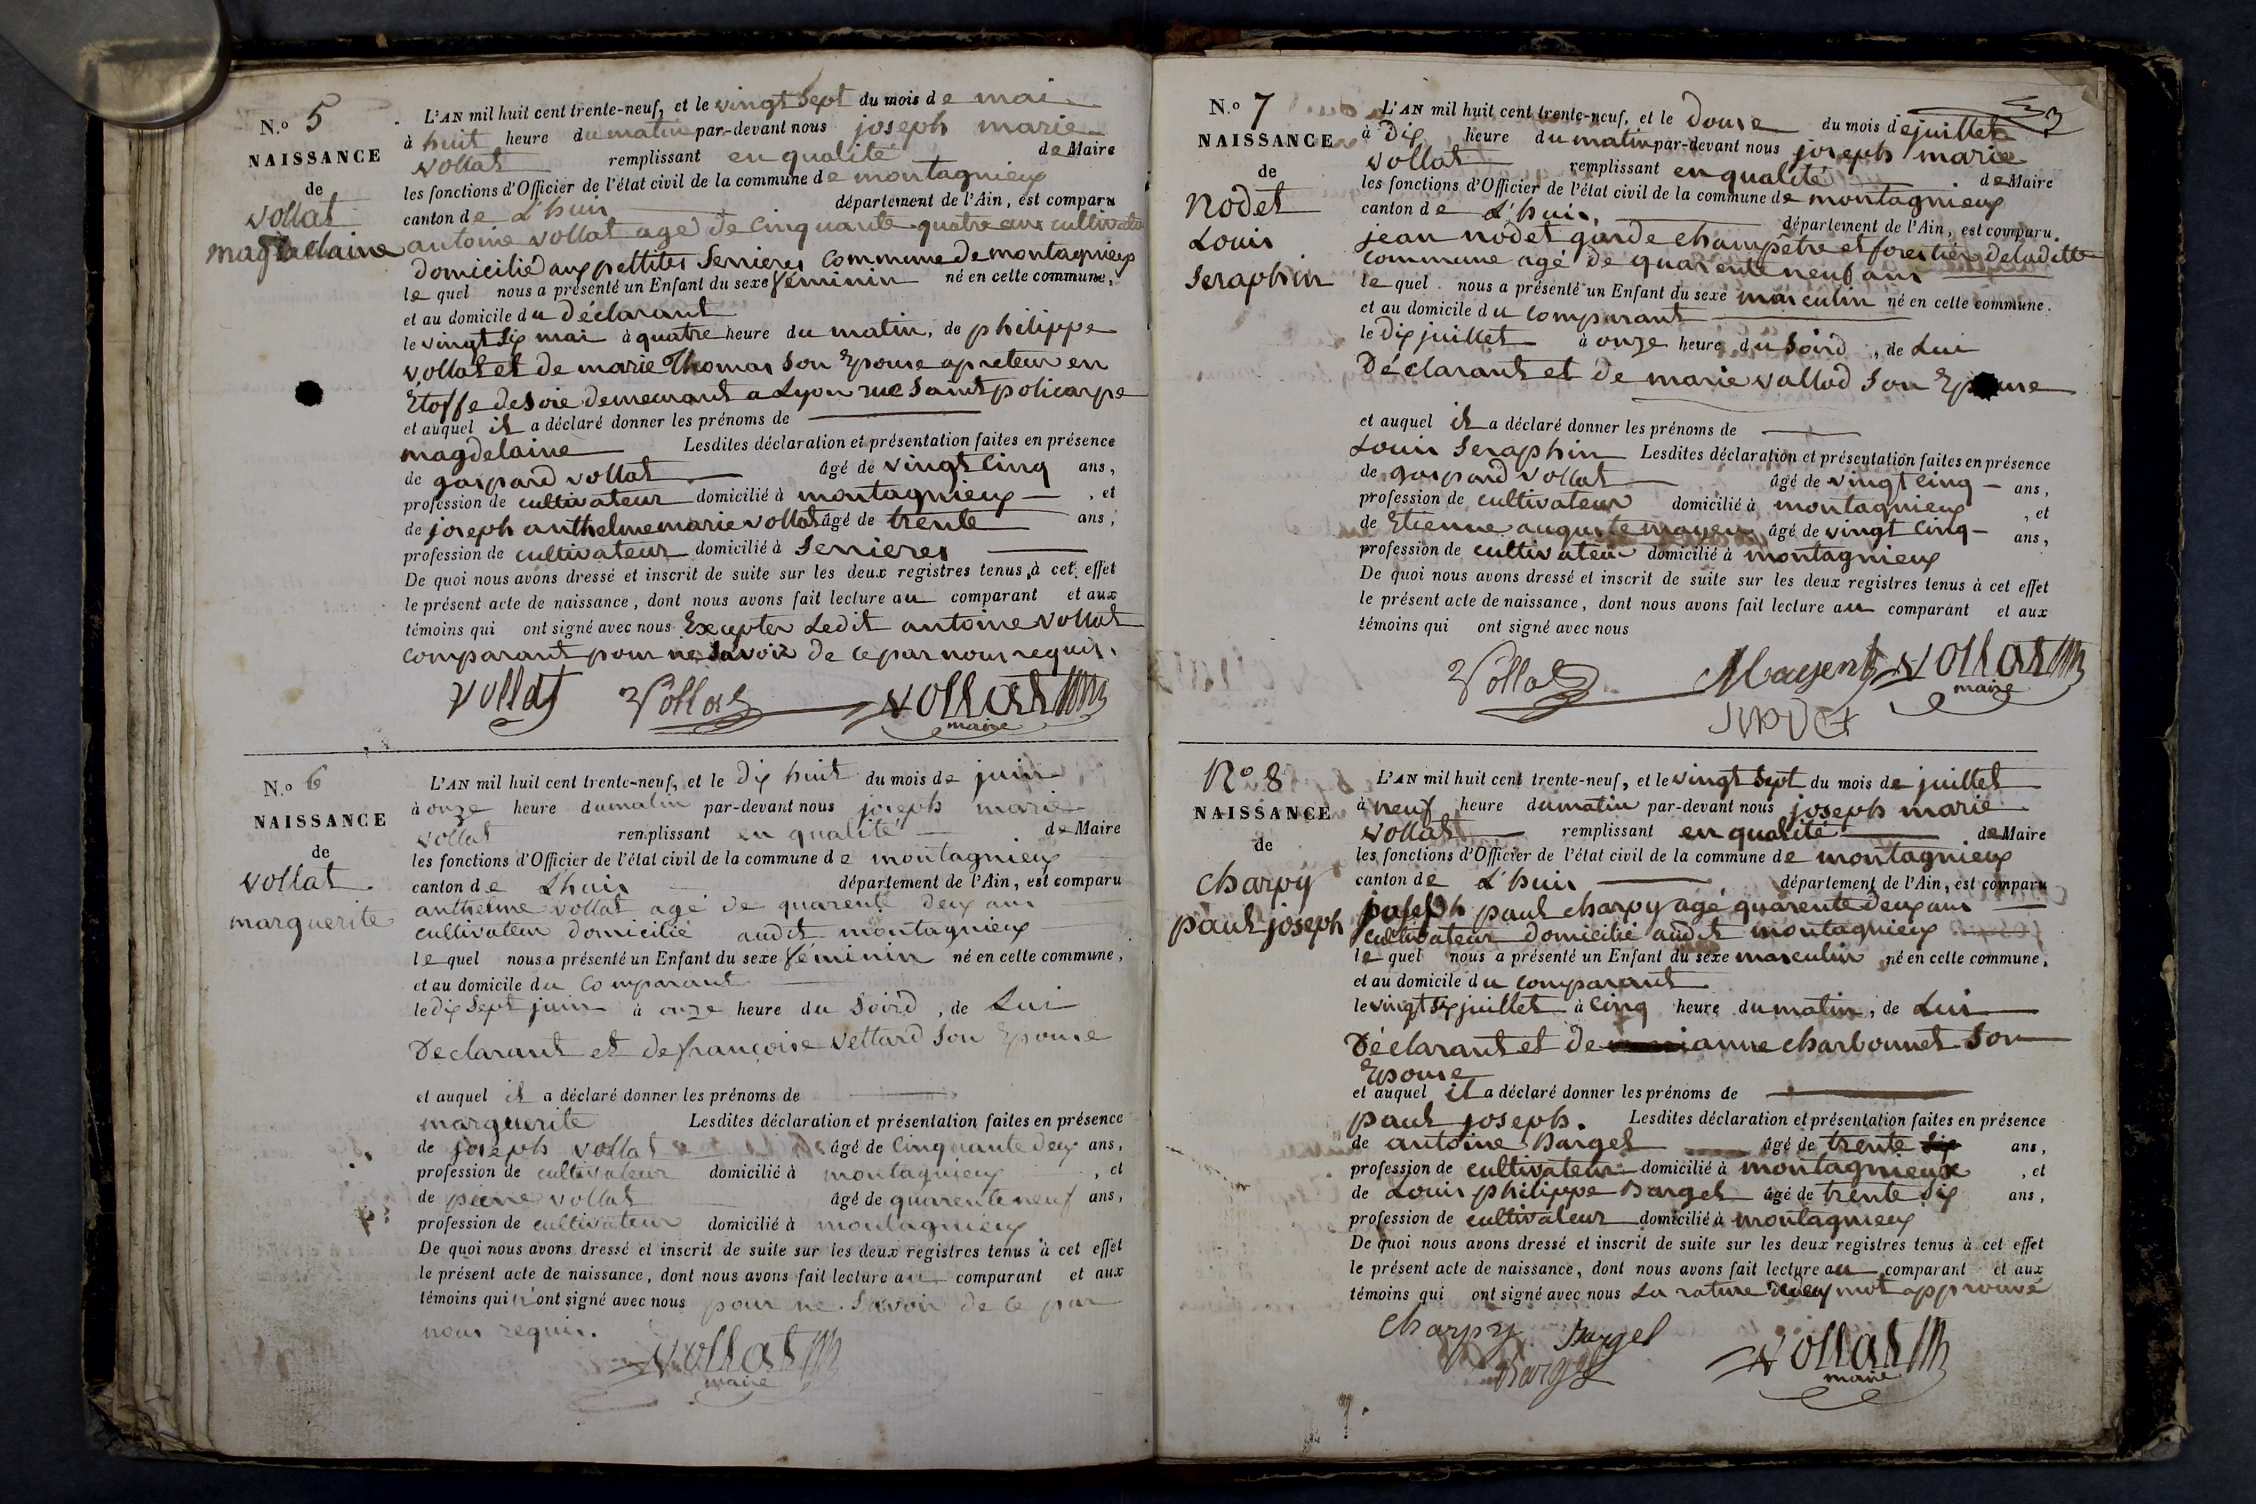 N.o 5
NAISSANCE
de
vollat
magdelaine
L'AN mil huit cent trente-neuf, et le vingt sept du mois de mai
à huit heure du matin par-devant nous joseph marie
vollat remplissant en qualité de Maire
les fonctions d'Officier de l'état civil de la commune de montagnieux
canton de L'huis département de l'Ain, est comparu
antoine vollat agé de Cinquante quatre ans cultivateur
domicilié aux pettites Serrieres Commune de montagnieux
le quel nous a présenté un Enfant du sexe féminin né en cette commune,
et au domicile du déclarant
le vingt six mai à quatre heure du matin, de philippe
vollat et de marie Thomas Son Epouse apreteur en
Etoffe de Soie demeurant a Lyon rue Saint policarpe
et auquel il a déclaré donner les prénoms de
magdelaine Lesdites déclaration et présentation faites en présence
de gaspard vollat âgé de vingt Cinq ans,
profession de cultivateur domicilié à montagnieux , et
de joseph anthelme marie vollat âgé de trente ans,
profession de cultivateur domicilié à Serrieres
De quoi nous avons dressé et inscrit de suite sur les deux registres tenus à cet effet
le présent acte de naissance, dont nous avons fait lecture au comparant et aux
témoins qui ont signé avec nous Excepter Ledit antoine vollat
comparant pour ne Savoir de ce par nous requis.
Vollat Vollat vollat
maire
N.o 6
NAISSANCE
de
vollat
marguerite
L'AN mil huit cent trente-neuf, et le dix huit du mois de juin
à onze heure du matin par-devant nous joseph marie
vollat remplissant en qualité de Maire
les fonctions d'Officier de l'état civil de la commune de montagnieux
canton de Lhuis département de l'Ain, est comparu
anthelme vollat agé de quarente deux ans
cultivateur domicilié audit montagnieux
le quel nous a présenté un Enfant du sexe féminin né en cette commune,
et au domicile du Comparant
le dix Sept juin à onze heure du Soird , de Lui
Declarant et de françoise vettard Son Epouse
et auquel il a déclaré donner les prénoms de
marguerite Lesdites déclaration et présentation faites en présence
de joseph vollat âgé de Cinquante deux ans,
profession de cultivateur domicilié à montagnieux , et
de pierre vollat âgé de quarente neuf ans,
profession de cultivateur domicilié à montagnieux
De quoi nous avons dressé et inscrit de suite sur les deux registres tenus à cet effet
le présent acte de naissance, dont nous avons fait lecture au comparant et aux
témoins qui n'ont signé avec nous pour ne Savoir de ce par
nous requis.
vollat
maire
N.o 7
NAISSANCE
de
Nodet
Louis
Seraphin
L'AN mil huit cent trente-neuf, et le Douse du mois de juillet
à Dix heure du matin par-devant nous joseph marie
vollat remplissant en qualité de Maire
les fonctions d'Officier de l'état civil de la commune de montagnieux
canton de L'huis, département de l'Ain, est comparu
jean nodet garde champêtre et forestier de laditte
commune agé de quarente neuf ans
le quel nous a présenté un Enfant du sexe masculin né en cette commune.
et au domicile du comparant
le Dix juillet à onze heure du Soird , de Lui
Déclarant et de marie vallod Son Epouse
et auquel il a déclaré donner les prénoms de
Louis Seraphin Lesdites déclaration et présentation faites en présence
de gaspard vollat âgé de vingt Cinq ans,
profession de cultivateur domicilié à montagnieux , et
de Etienne auguste mayen âgé de vingt Cinq ans,
profession de cultivateur domicilié à montagnieux
De quoi nous avons dressé et inscrit de suite sur les deux registres tenus à cet effet
le présent acte de naissance, dont nous avons fait lecture au comparant et aux
témoins qui ont signé avec nous
Vollat vollat
maire
N.o 8
NAISSANCE
de
Charpy
paul joseph
L'AN mil huit cent trente-neuf, et le vingt Sept du mois de juillet
à neuf heure du matin par-devant nous joseph marie
vollat remplissant en qualité de Maire
les fonctions d'Officier de l'état civil de la commune de montagnieux
canton de L'huis département de l'Ain, est comparu
joseph paul charpy agé quarente deux ans
cultivateur domicilié audit montagnieux
le quel nous a présenté un Enfant du sexe masculin né en cette commune,
et au domicile du comparant
le vingt six juillet à Cinq heure du matin, de Lui
Déclarant et de anne charbonnet Son
Epouse
et auquel il a déclaré donner les prénoms de
paul joseph. Lesdites déclaration et présentation faites en présence
de antoine Barget âgé de trente six ans,
profession de cultivateur domicilié à montagnieux , et
de Louis philippe Barget âgé de trente six ans,
profession de cultivateur domicilié à montagnieux
De quoi nous avons dressé et inscrit de suite sur les deux registres tenus à cet effet
le présent acte de naissance, dont nous avons fait lecture au comparant et aux
témoins qui ont signé avec nous La rature deux mot approuvé
Charpy Barget
Barget vollat
maire